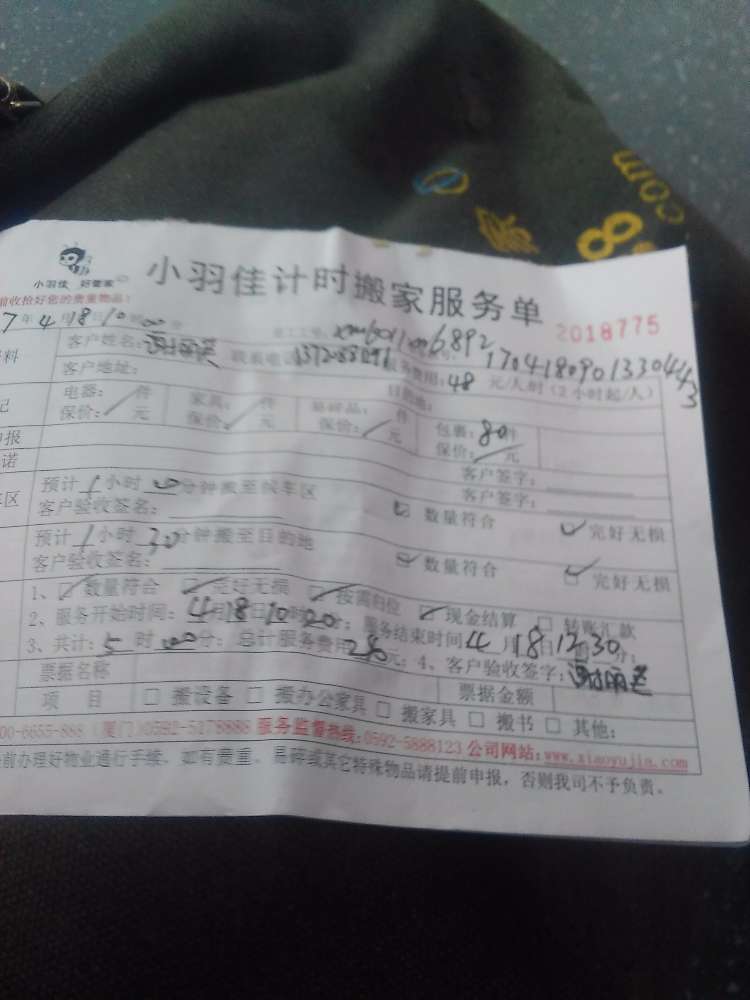 com
8
小羽佳 好管家
小羽佳计时搬家服务单
前收拾好您的贵重物品!
2018775
7年4月18日10时00分
1704180901330443
客户姓名: 联系电话 服务费用:48元/人时(2小时起/人)
客户地址: 目的地:
电器: 件 家具: 件 易碎品: 件 包裹:80件
保价: 元 保价: 元 保价: 元 保价: 元
客户签字:
客户签字:
预计1小时00分钟搬至候车区
客户验收签名: 数量符合 完好无损
预计1小时30分钟搬至目的地
客户验收签名: 数量符合 完好无损
1、数量符合 完好无损 按需归位 现金结算 转账汇款
2、服务开始时间:4月18日10时20分;服务结束时间4月18日12时30分;
3、共计:5时00分;总计服务费用 元;4、客户验收签字:
票据名称 票据金额
项 目 搬设备 搬办公家具 搬家具 搬书 其他:
00-6655-888 (厦门)0592-5178888 服务监督热线:0592-5888123 公司网站:www.xiaoyujia.com
前办理好物业通行手续。如有贵重、易碎或其它特殊物品请提前申报,否则我司不予负责。